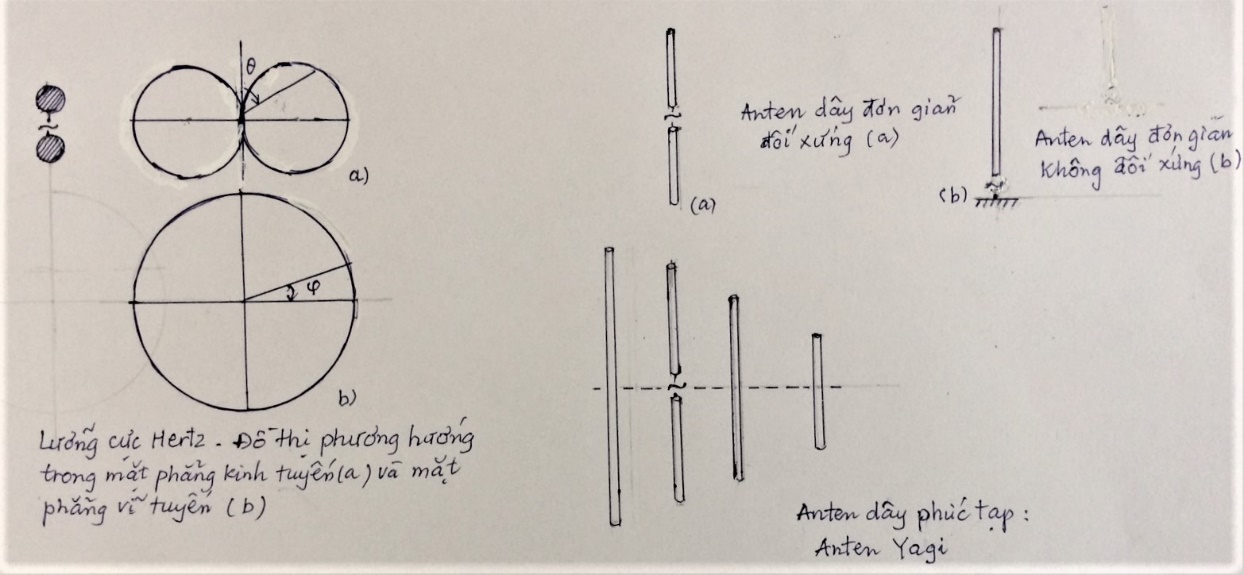 θ
a)
φ
b)
Lưỡng cực Hertz - Đồ thị phương hướng
trong mặt phẳng kinh tuyến (a) và mặt
phẳng vĩ tuyến (b)
(a)
Anten dây đơn giản
đối xứng (a)
(b)
Anten dây đơn giản
Không đối xứng (b)
Anten dây phức tạp :
Anten Yagi